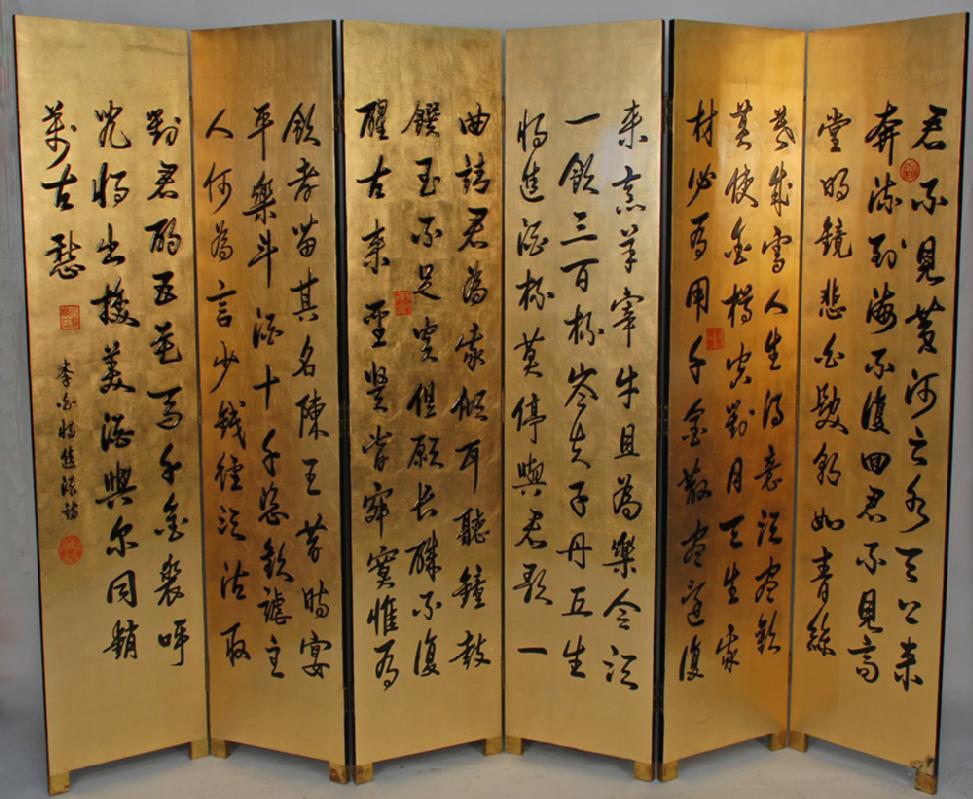 君不見黃河之水天上来
奔流到海不復回君不見高
堂明鏡悲白髮朝如青絲
暮成雪人生得意須盡歡
莫使金樽空對月天生我
材必有用千金散盡還復
来烹羊宰牛且為樂會須
一飲三百杯岑夫子丹丘生
將進酒杯莫停與君歌一
曲請君為我傾耳聽鐘鼓
饌玉不足貴但願長醉不復
醒古来聖賢皆寂寞惟有
飲者留其名陳王昔時宴
平樂斗酒十千恣歡謔主
人何為言少錢徑須沽取
對君酌五花馬千金裘呼
兒將出換美酒與爾同銷
萬古愁
李白將進酒詩